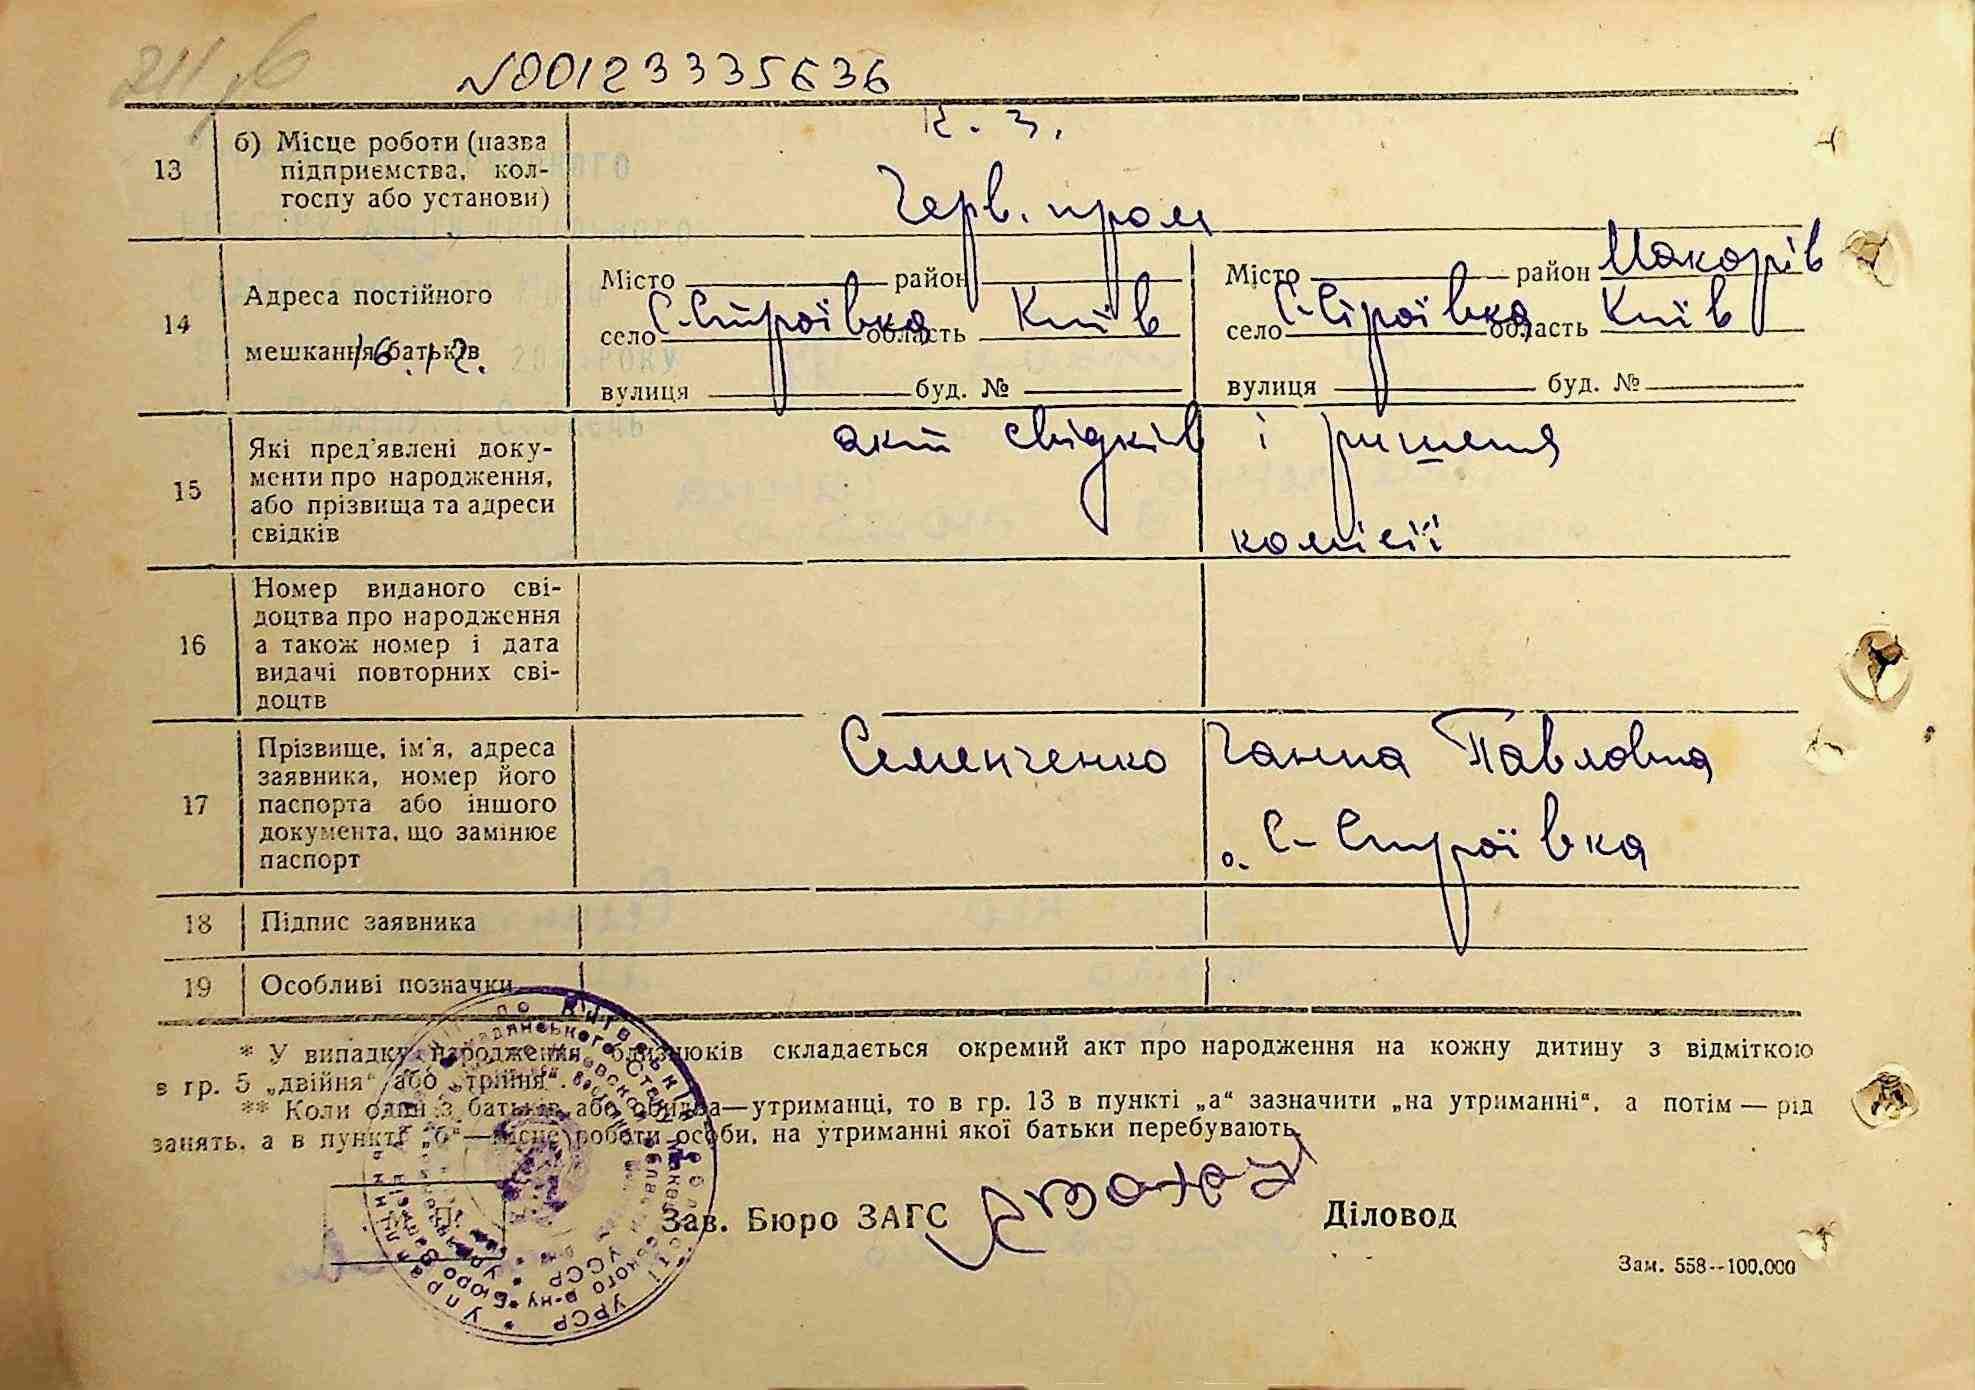 N00123335636
13
б) Місце роботи (назва
підприємства, кол-
госпу або установи)
К. З.
Черв. пром
14
Адреса постійного
мешкання батьків
16.12.
Місто район
село С-Строївка область Київ
вулиця буд. №
Місто район Макарів
село С-Строївка область Київ
вулиця буд. №
15
Які пред'явлені доку-
менти про народження,
або прізвища та адреси
свідків
акт свідків і ришеня
комісії
16
Номер виданого сві-
доцтва про народження
а також номер і дата
видачі повторних сві-
доцтв
17
Прізвище, ім'я, адреса
заявника, номер його
паспорта або іншого
документа, що замінює
паспорт
Семенченко Ганна Павловна
С-Строївка
18
Підпис заявника
19
Особливі позначки
* У випадку народження близнюків складається окремий акт про народження на кожну дитину з відміткою
в гр. 5 „двійня" або „трійня".
** Коли один з батьків або обидва—утриманці, то в гр. 13 в пункті „а" зазначити „на утриманні", а потім — рід
занять, а в пункті „б"—місце роботи особи, на утриманні якої батьки перебувають.
Зав. Бюро ЗАГС
Діловод
Зам. 558--100.000